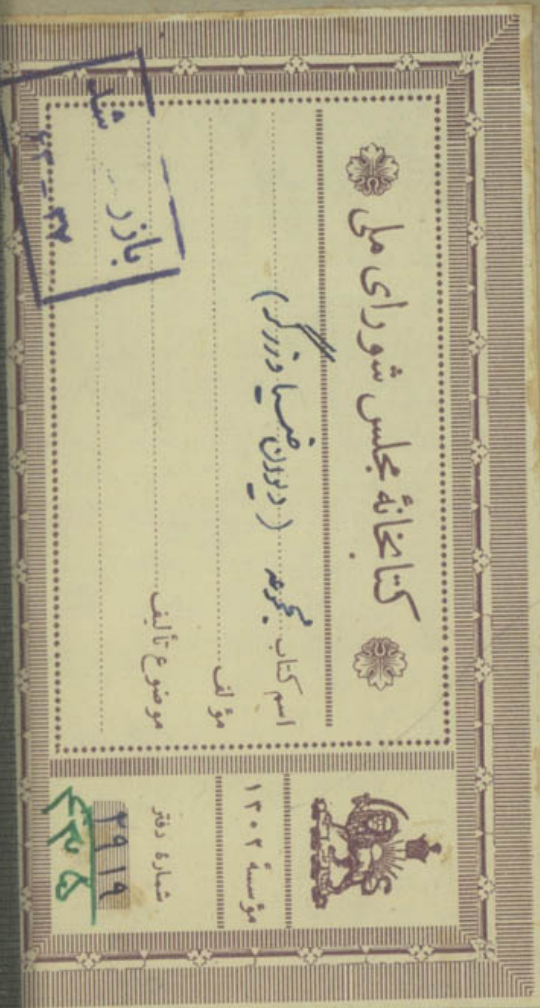 کتابخانهٔ مجلس شورای ملی
اسم کتاب مجموعه (دیوان ضیا و نرگ)
مؤلف
موضوع تألیف
مؤسسهٔ ۱۳۰۲
شمارهٔ دفتر
۲۹۱۹
بازر شد
۳۷ - ۴۲